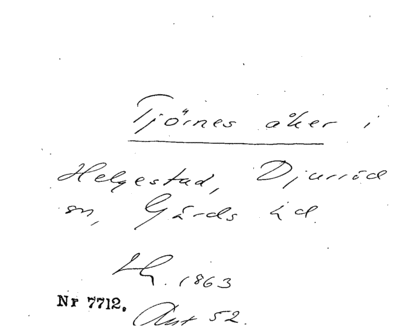 Tjörnes åker i
Helgestad, Djurröd
sn, Gärds hd.
LG. 1863
Nr 7712.
Ant 52.